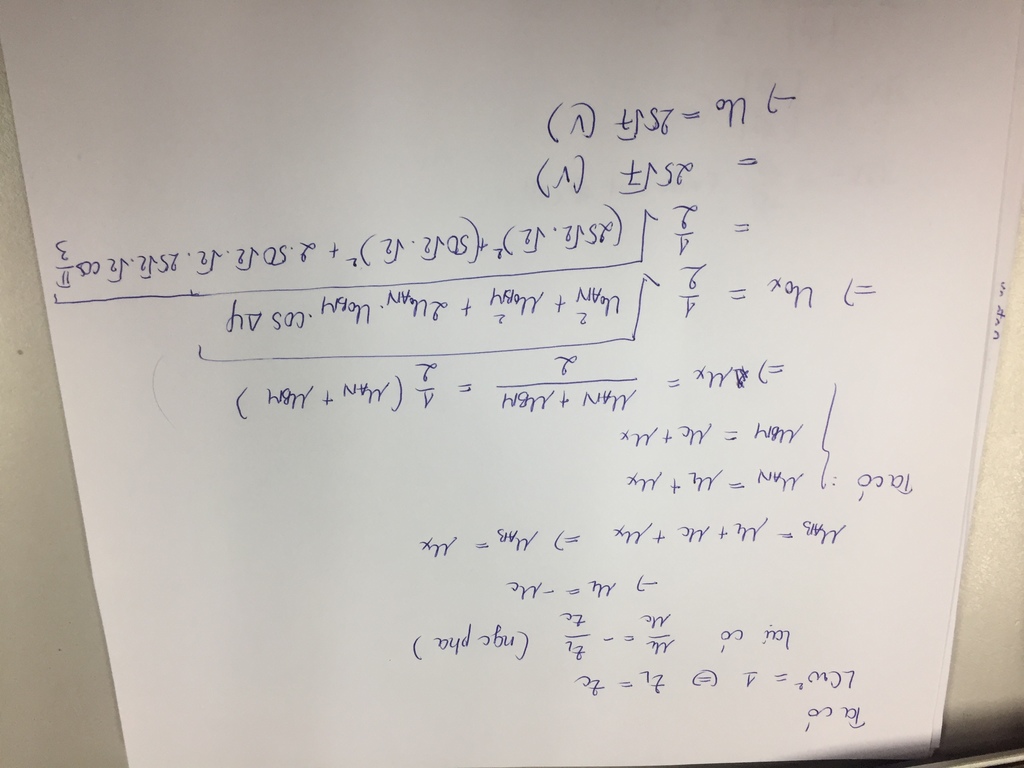 Ta có
LCω² = 1 ⇔ ZL = ZC
lại có uL/uC = - ZL/ZC (ngc pha)
→ uL = - uC
uAB = uL + uC + uX ⇒ uAB = uX
Ta có : { uAN = uL + uX
uBM = uC + uX
⇒ uX = (uAN + uBM)/2 = 1/2 (uAN + uBM)
⇒ U₀X = 1/2 √(U²AN + U₀²BM + 2UAN . U₀BM . cos Δφ)
= 1/2 √((25√2 . √2)² + (50√2 . √2)² + 2.50√2 . √2 . 25√2 . √2 cos π/3)
= 25√7 (V)
→ U₀ = 25√7 (V)